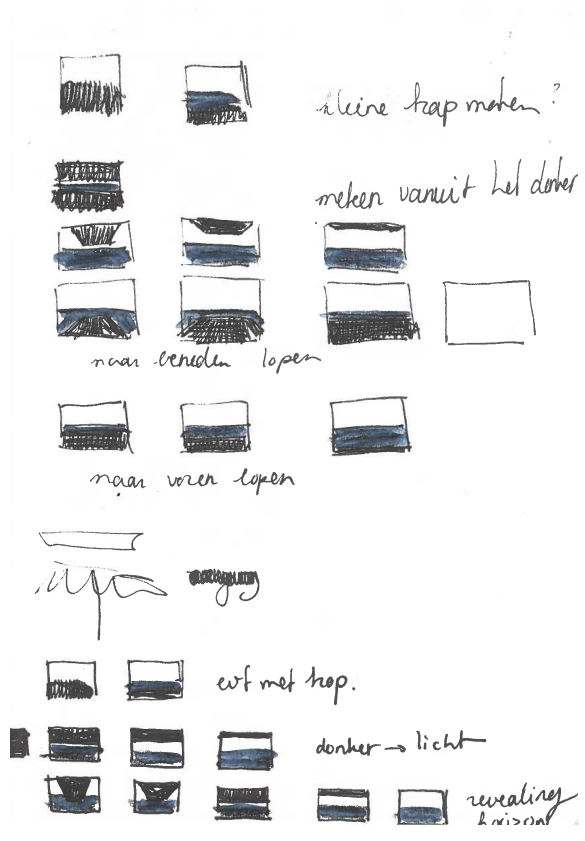 kleine trap maken?
maken vanuit het donker
naar beneden lopen
naar voren lopen
evt met trap.
donker → licht
revealing
horizon